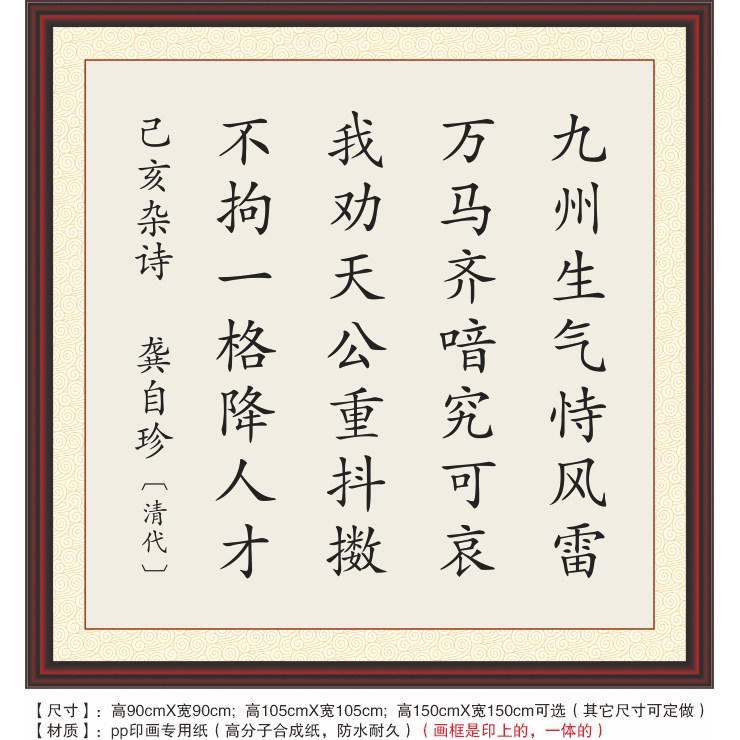 九州生气恃风雷
万马齐喑究可哀
我劝天公重抖擞
不拘一格降人才
己亥杂诗 龚自珍〔清代〕
【尺寸】：高90cmX宽90cm; 高105cmX宽105cm; 高150cmX宽150cm可选（其它尺寸可定做）
【材质】：pp印画专用纸（高分子合成纸，防水耐久）（画框是印上的，一体的）